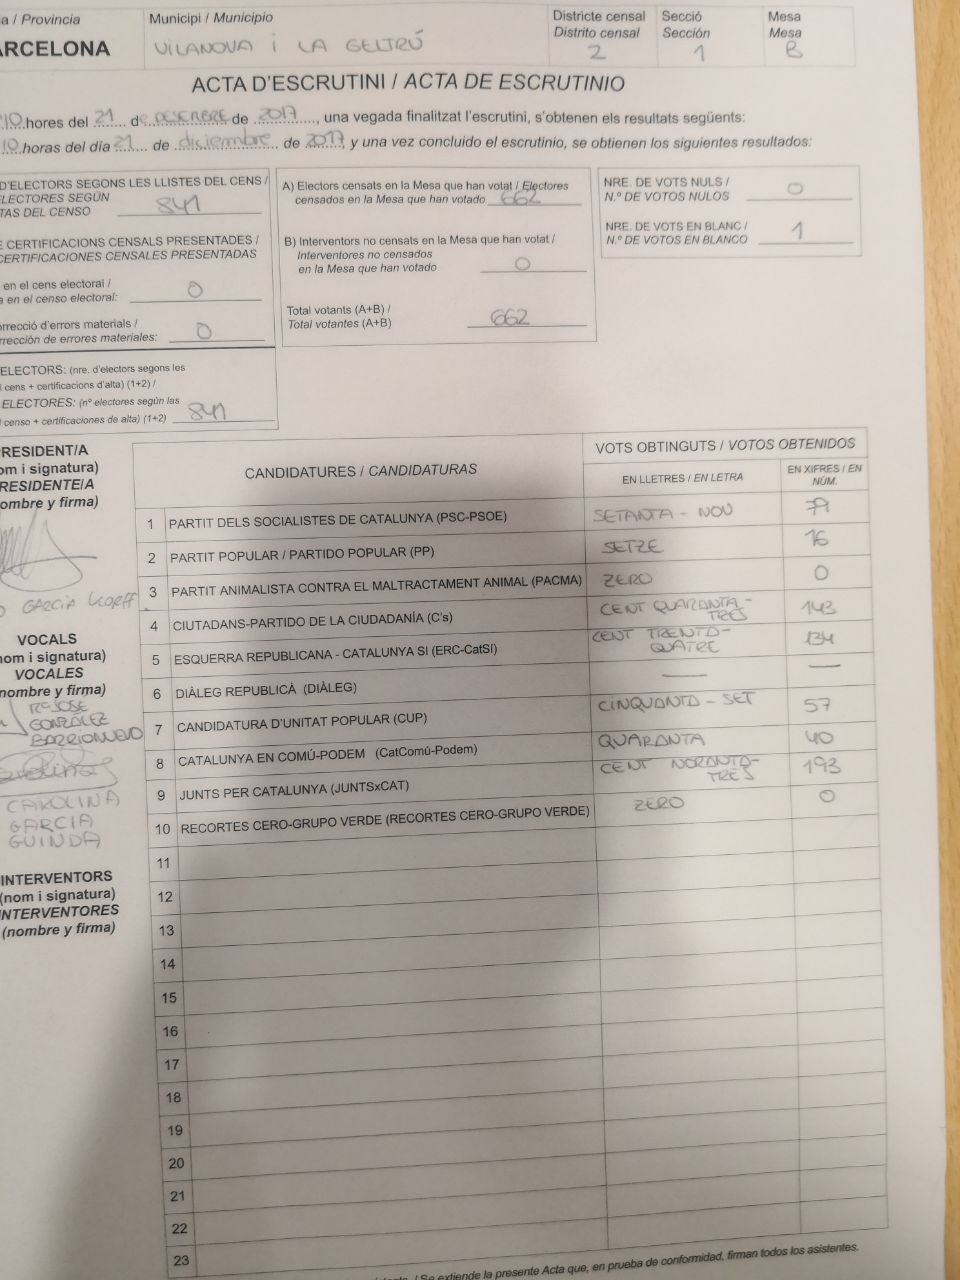 a / Provincia
ARCELONA
Municipi / Municipio
VILANOVA i LA GELTRÚ
Districte censal
Distrito censal
2
Secció
Sección
1
Mesa
Mesa
B
ACTA D'ESCRUTINI / ACTA DE ESCRUTINIO
10 hores del 21 de DESEMBRE de 2017, una vegada finalitzat l'escrutini, s'obtenen els resultats següents:
10 horas del día 21 de diciembre de 2017, y una vez concluido el escrutinio, se obtienen los siguientes resultados:
D'ELECTORS SEGONS LES LLISTES DEL CENS /
ELECTORES SEGÚN
TAS DEL CENSO 841
E CERTIFICACIONS CENSALS PRESENTADES /
CERTIFICACIONES CENSALES PRESENTADAS
en el cens electoral /
a en el censo electoral: 0
orrecció d'errors materials /
rrección de errores materiales: 0
ELECTORS: (nre. d'electors segons les
l cens + certificacions d'alta) (1+2) /
ELECTORES: (nº electores según las
l censo + certificaciones de alta) (1+2) 841
A) Electors censats en la Mesa que han votat / Electores
censados en la Mesa que han votado 662
B) Interventors no censats en la Mesa que han votat /
Interventores no censados
en la Mesa que han votado 0
Total votants (A+B) /
Total votantes (A+B) 662
NRE. DE VOTS NULS /
N.º DE VOTOS NULOS 0
NRE. DE VOTS EN BLANC /
N.º DE VOTOS EN BLANCO 1
PRESIDENT/A
om i signatura)
RESIDENTE/A
ombre y firma)
GARCIA KORFF
VOCALS
nom i signatura)
VOCALES
nombre y firma)
Mª JOSE
GONZÁLEZ
BARRIONUEVO
CAROLINA
GARCIA
GUINDA
INTERVENTORS
(nom i signatura)
INTERVENTORES
(nombre y firma)
CANDIDATURES / CANDIDATURAS
VOTS OBTINGUTS / VOTOS OBTENIDOS
EN LLETRES / EN LETRA
EN XIFRES / EN
NÚM.
1 PARTIT DELS SOCIALISTES DE CATALUNYA (PSC-PSOE) SETANTA - NOU 79
2 PARTIT POPULAR / PARTIDO POPULAR (PP) SETZE 16
3 PARTIT ANIMALISTA CONTRA EL MALTRACTAMENT ANIMAL (PACMA) ZERO 0
4 CIUTADANS-PARTIDO DE LA CIUDADANÍA (C's) CENT QUARANTA - TRES 143
5 ESQUERRA REPUBLICANA - CATALUNYA SI (ERC-CatSí) CENT TRENTA- QUATRE 134
6 DIÀLEG REPUBLICÀ (DIÀLEG) — —
7 CANDIDATURA D'UNITAT POPULAR (CUP) CINQUANTA - SET 57
8 CATALUNYA EN COMÚ-PODEM (CatComú-Podem) QUARANTA 40
9 JUNTS PER CATALUNYA (JUNTSxCAT) CENT NORANTA- TRES 193
10 RECORTES CERO-GRUPO VERDE (RECORTES CERO-GRUPO VERDE) ZERO 0
11
12
13
14
15
16
17
18
19
20
21
22
23
/ Se extiende la presente Acta que, en prueba de conformidad, firman todos los asistentes.